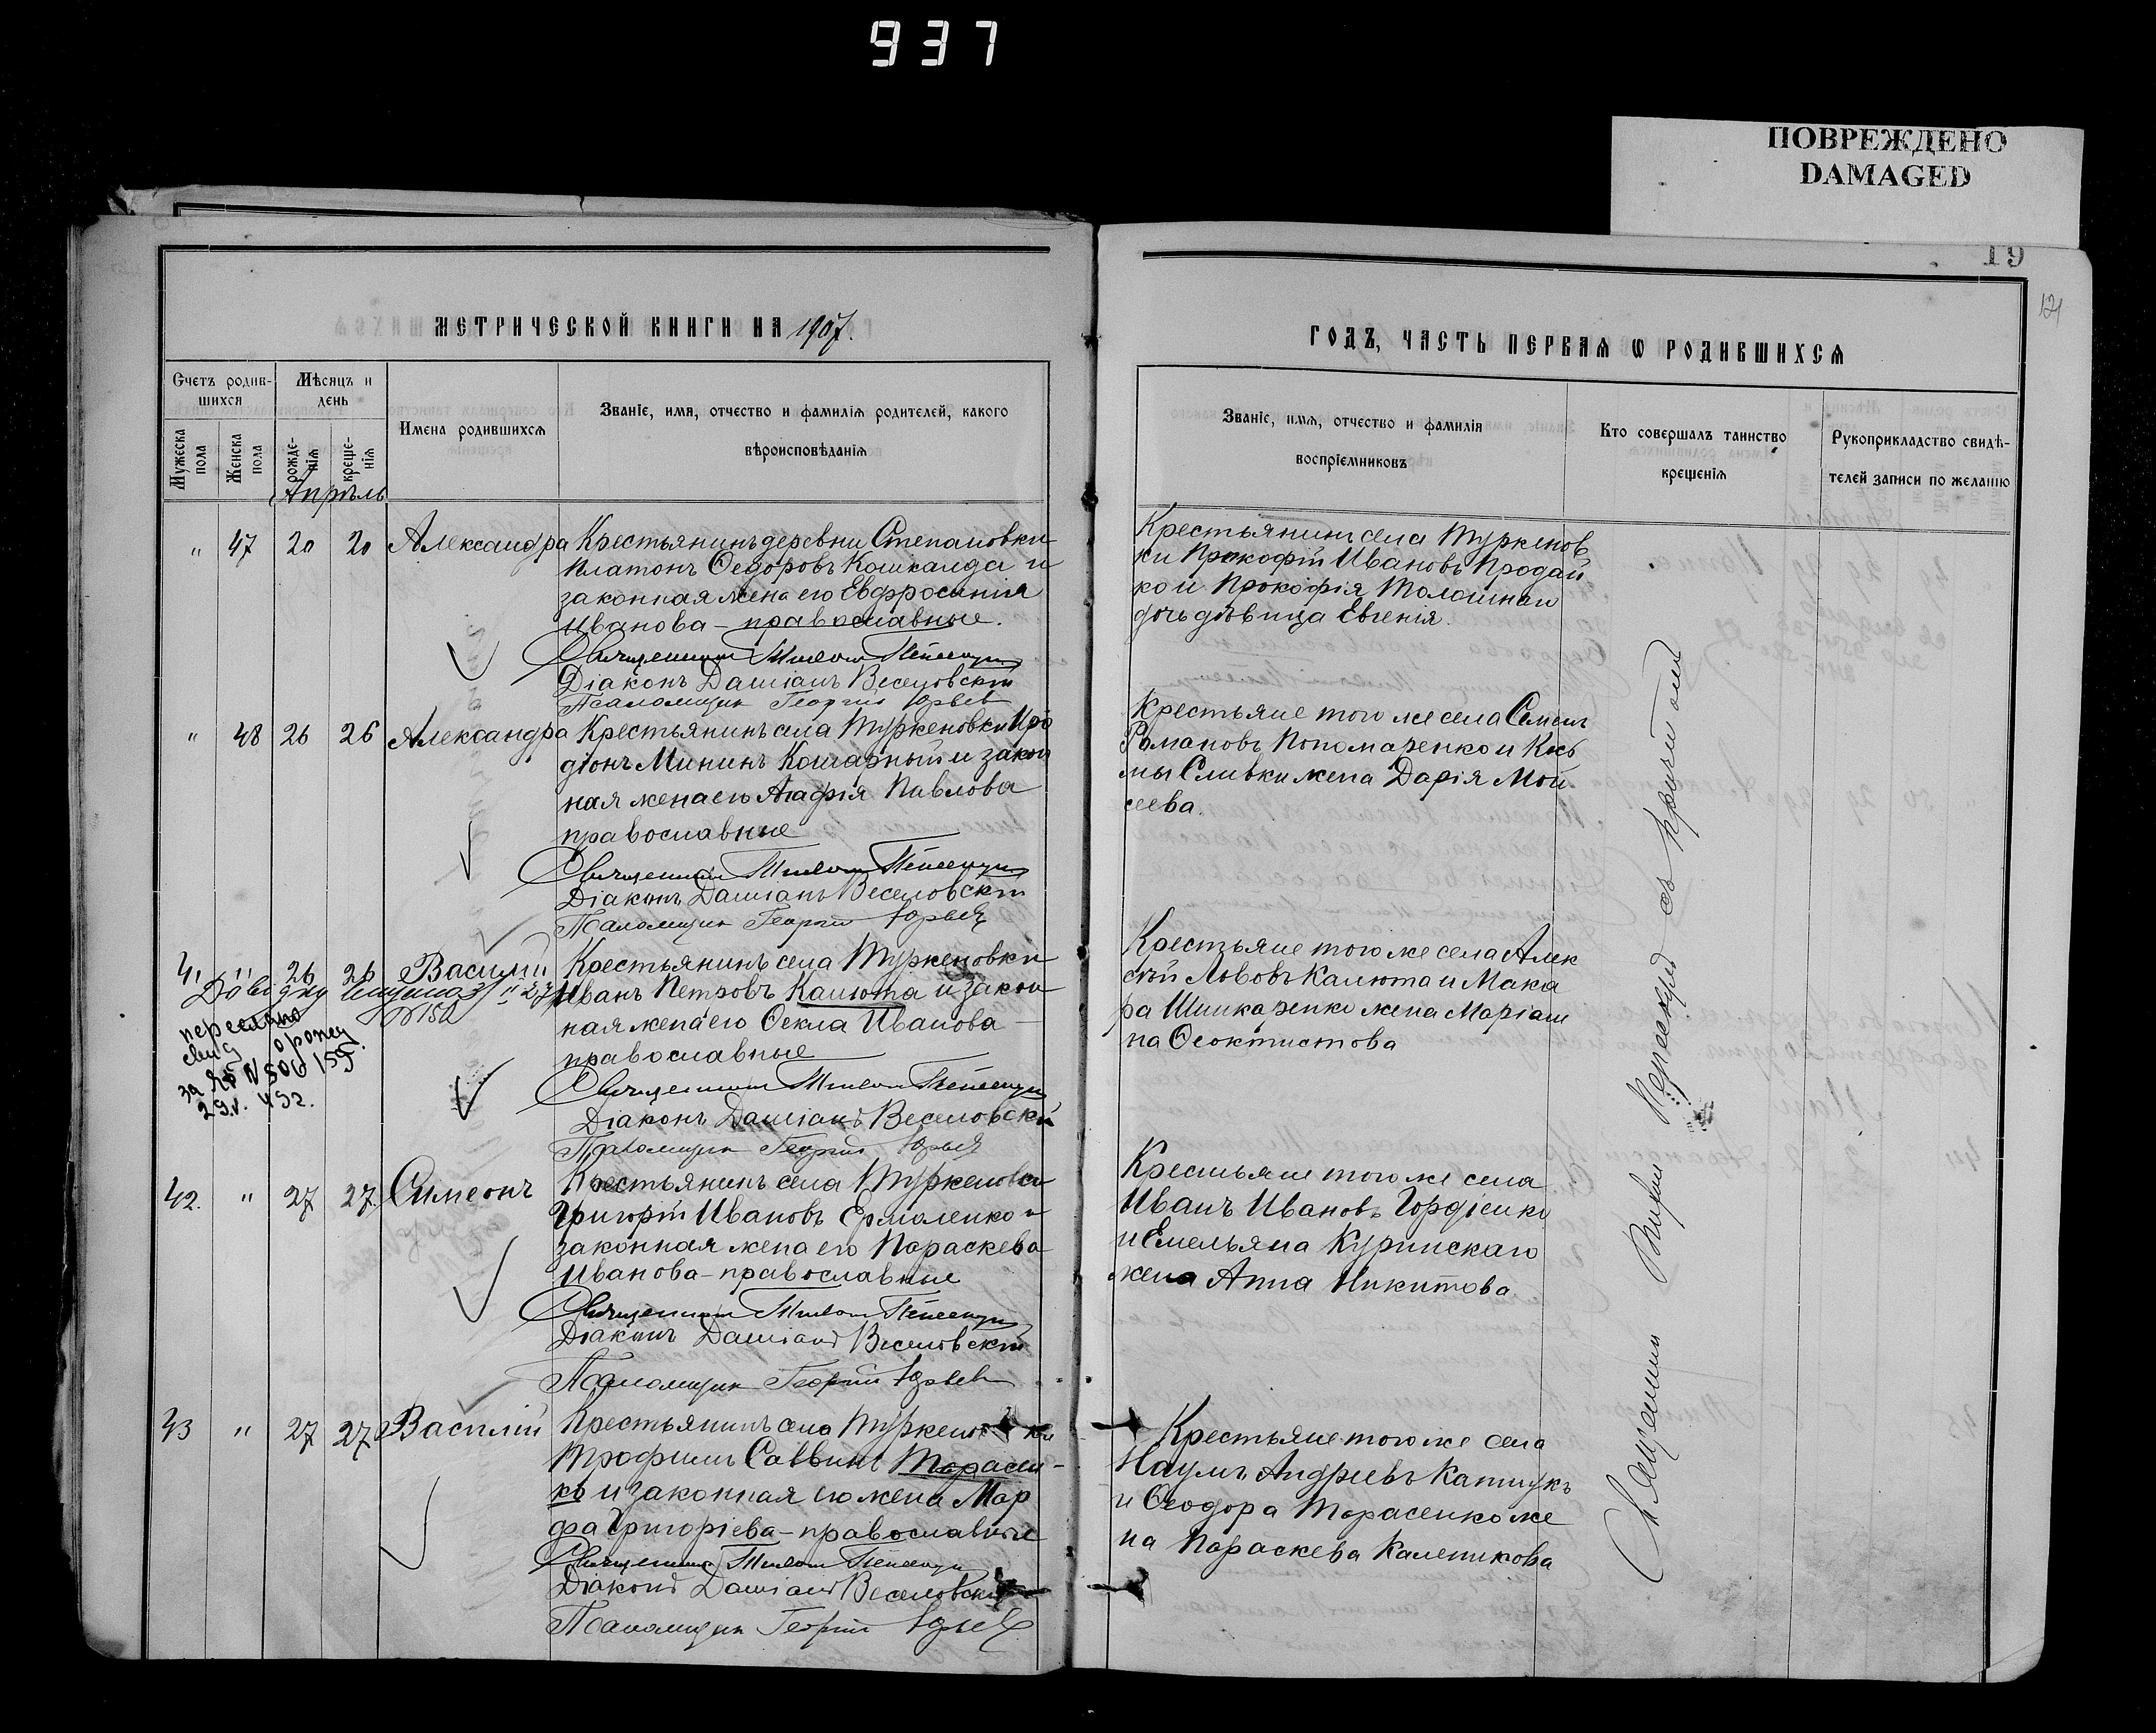 937
ПОВРЕЖДЕНО
DAMAGED
19
МЕТРИЧЕСКОЙ КНИГИ НА 1907.
ГОДЪ, ЧАСТЬ ПЕРВАЯ Ѡ РОДИВШИХСЯ
Счетъ родив-
шихся
Мѣсяцъ и
день
Мужеска
пола
Женска
пола
рожде-
нія
креще-
нія
Имена родившихся
Званіе, имя, отчество и фамилія родителей, какого
вѣроисповѣданія
Званіе, имя, отчество и фамилія
воспріемниковъ
Кто совершалъ таинство
крещенія
Рукоприкладство свидѣ-
телей записи по желанію
Апрѣль
" 47 20 20 Александра Крестьянинъ деревни Степановки
Платонъ Ѳедоровъ Кошкалда и
законная жена его Евфросинія
Иванова – православные.
Священникъ
Діаконъ Даміанъ Веселовскій
Псаломщик Георгій Юрьев
Крестьянинъ села Туркенов
ки Прокофій Ивановъ Продай
ко и Прокофія
дочь дѣвица Евгенія.
" 48 26 26 Александра Крестьянинъ села Туркеновки Иро
діонъ Мининъ Кошарный и закон
ная жена его Агафія Павлова
православные
Священникъ
Діаконъ Даміанъ Веселовскій
Псаломщик Георгій Юрьев
Крестьяне того же села Семенъ
Романовъ Пономаренко и Кось
мы Сливки жена Дарія Мой
сеева.
41 " 26 26 Василій Крестьянинъ села Туркеновки
Иванъ Петровъ Калюта и закон
ная жена его Ѳекла Иванова –
православные
Священникъ
Діаконъ Даміанъ Веселовскій
Псаломщик Георгій Юрьев
Крестьяне того же села Алек
сѣй Львовъ Калюта и Мака
ра Шинкаренко жена Маріам
на Ѳеоктистова
42. " 27 27. Симеонъ Крестьянинъ села Туркеновки
Григорій Ивановъ Ермоленко и
законная жена его Параскева
Иванова – православные
Священникъ
Діаконъ Даміанъ Веселовскій
Псаломщик Георгій Юрьев
Крестьяне того же села
Иванъ Ивановъ Гордіенко
и Емельяна Куринскаго
жена Анна Никитова
43 " 27 27 Василій Крестьянинъ села Туркеновки
Трофимъ Саввинъ Тарасен-
ко и законная его жена Мар
фа Григоріева – православные
Священникъ
Діаконъ Даміанъ Веселовскій
Псаломщик Георгій Юрьев
Крестьяне того же села
Наумъ Андреевъ
и Ѳеодора Тарасенко же
на Параскева Каленикова
Священникъ
съ причтомъ